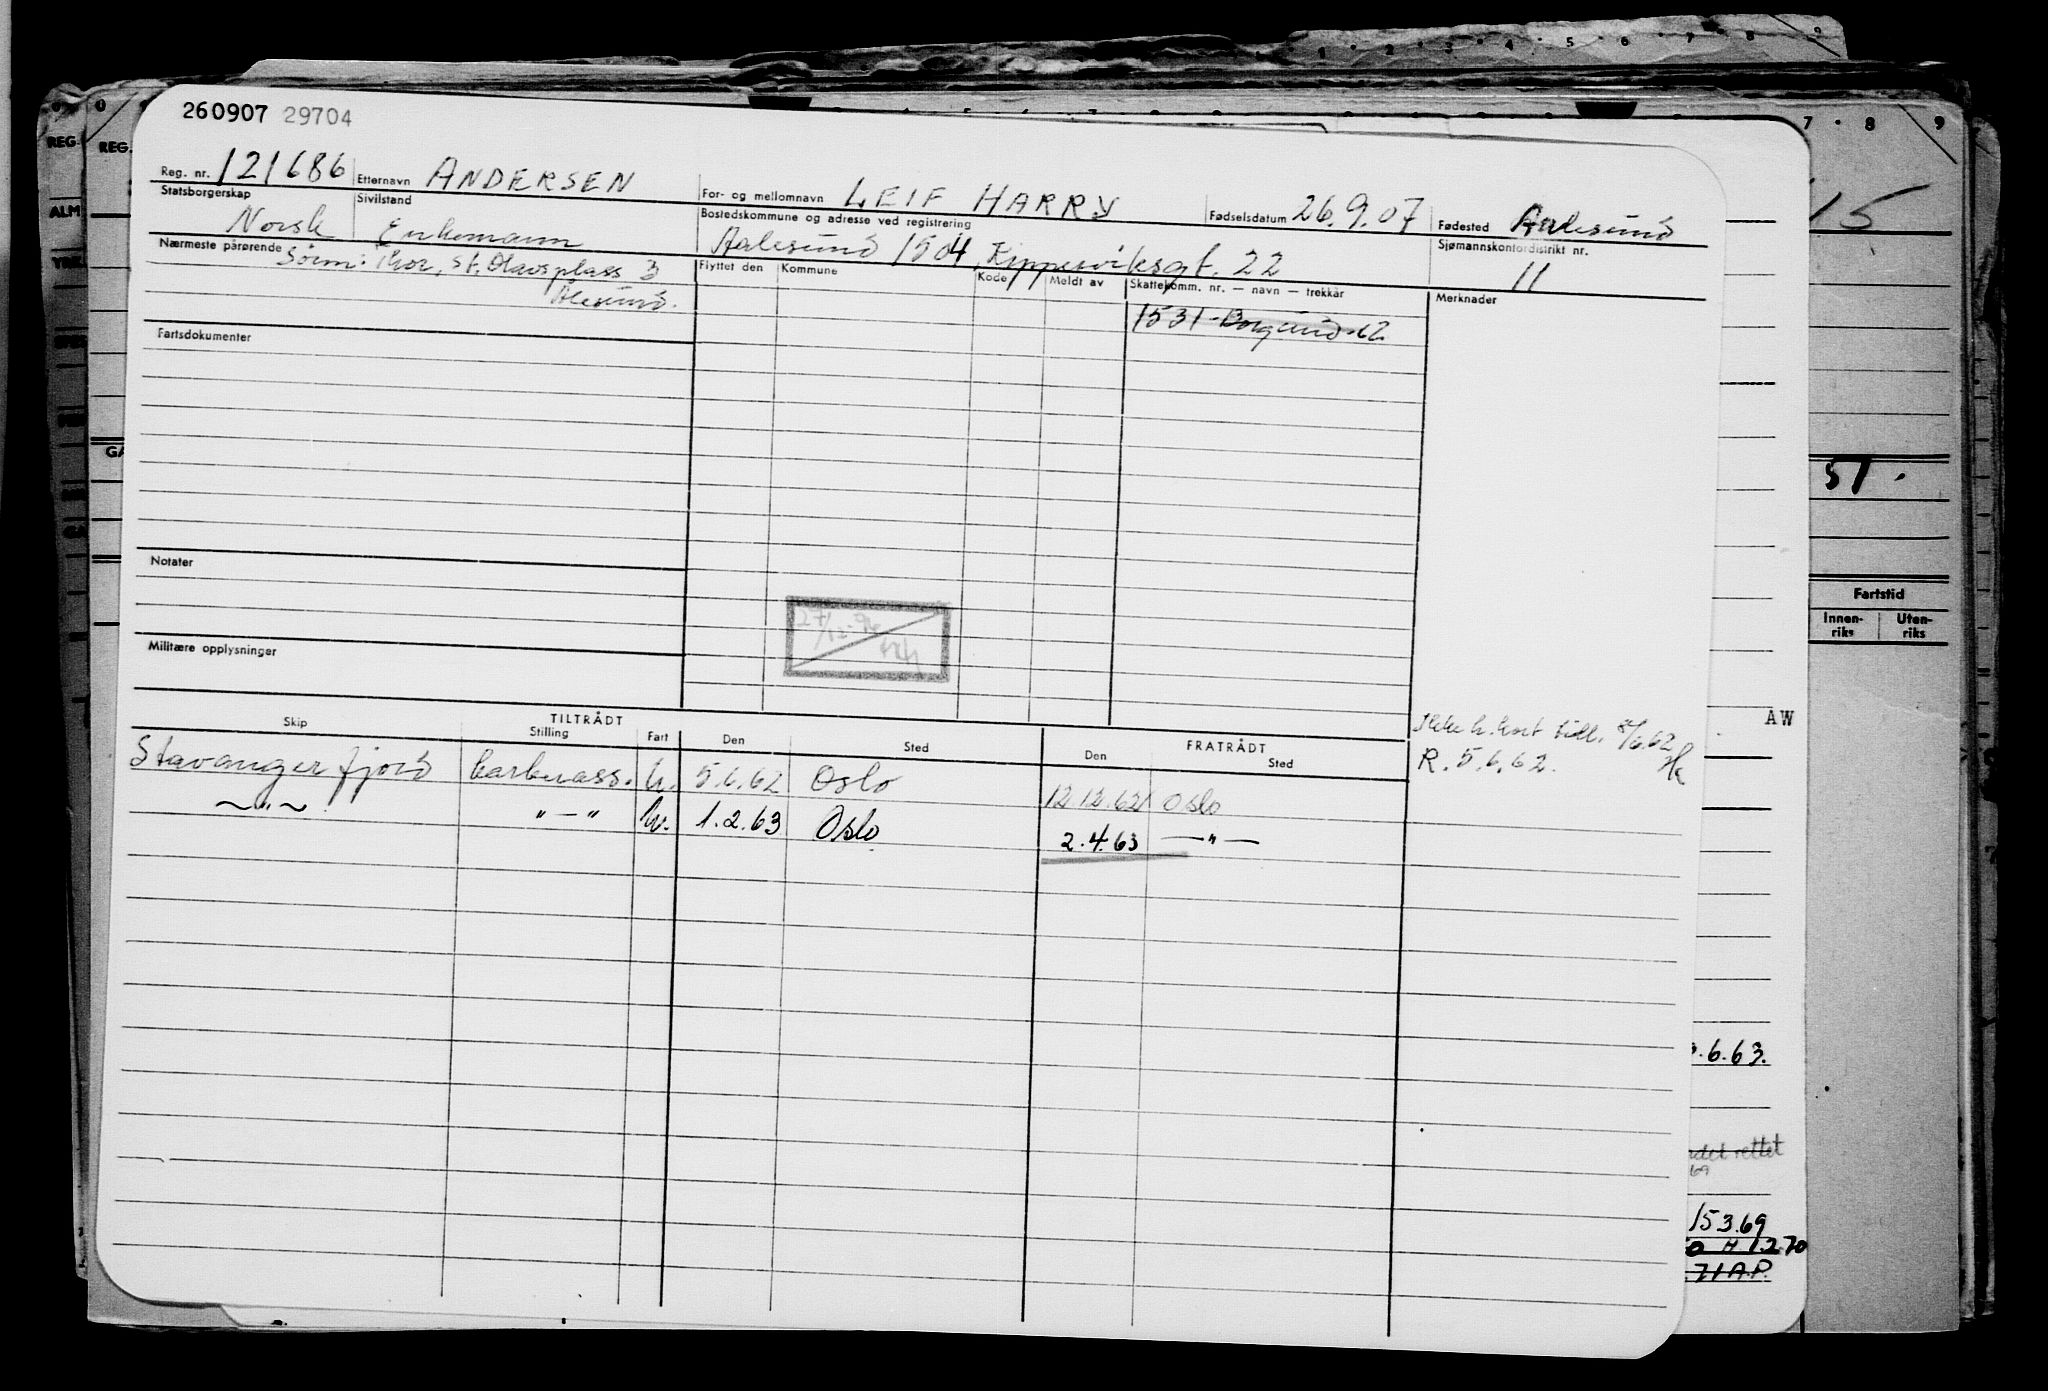 260907 29704
Reg. nr. 121686 Etternavn ANDERSEN For- og mellomnavn LEIF HARRY Fødselsdatum 26.9.07 Fødested Aalesund
Statsborgerskap Norsk Sivilstand Enkemann Bostedskommune og adresse ved registrering Aalesund 1504, Kipperviksgt. 22 Sjømannskontordistrikt nr. 11
Nærmeste pårørende Sønn: Thor, St. Olavsplass 3
Ålesund.
Flyttet den Kommune Kode Meldt av Skattekomm. nr. — navn — trekkår Merknader
1531 - Borgund - 62
Fartsdokumenter
Notater
27/12-
Militære opplysninger
TILTRÅDT FRATRÅDT
Skip Stilling Fart Den Sted Den Sted
Ikke h. kort till. 8/6.62
R. 5.6.62.
Stavangerfjord U. 5.6.62 Oslo 12.12.62 Oslo
〜"〜 " — " U. 1.2.63 Oslo 2.4.63 — " —
REG.
REG.
ALM
GA
7 8 9
15
51.
Fartstid
Innen-
riks
Uten-
riks
AW
.6.63.
rettet
69
153.69
H 1.2.70
71 A.P.